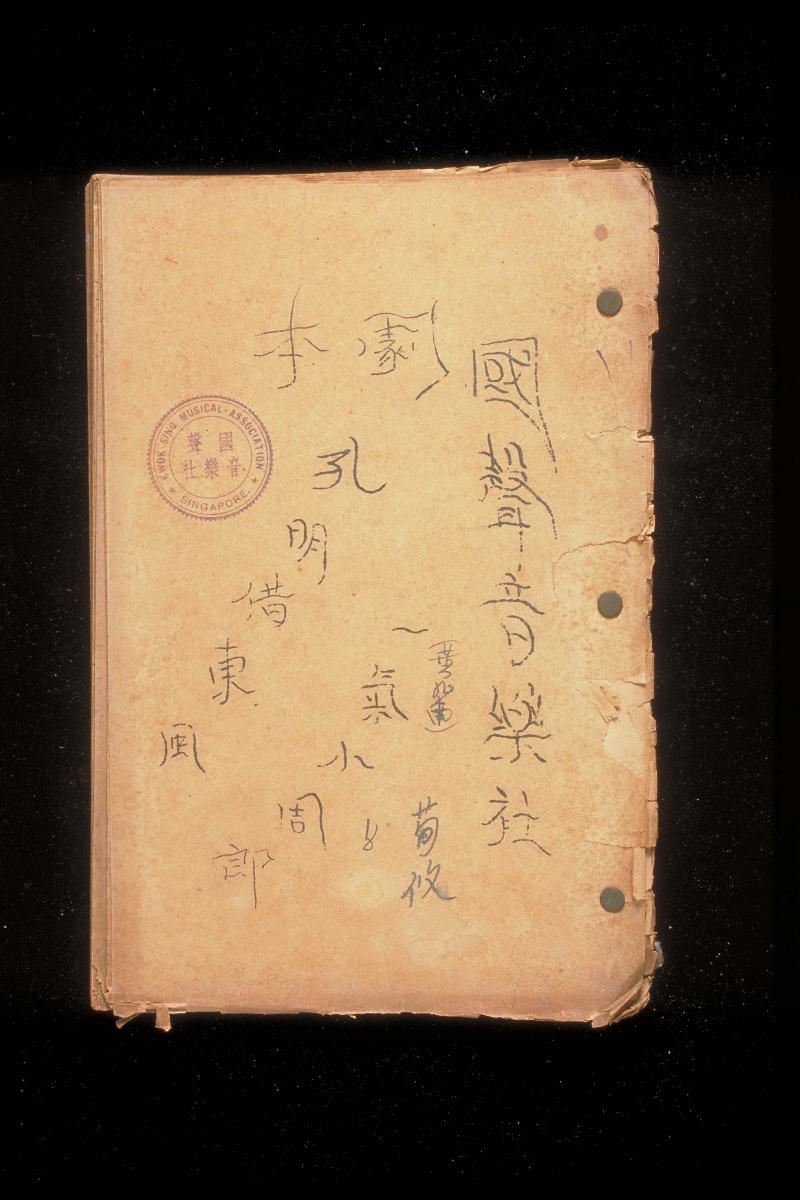 國聲音樂社
劇本
荀攸
一氣小周郎
孔明借東風
KWOK SING MUSICAL ASSOCIATION
國聲
音樂社
SINGAPORE.